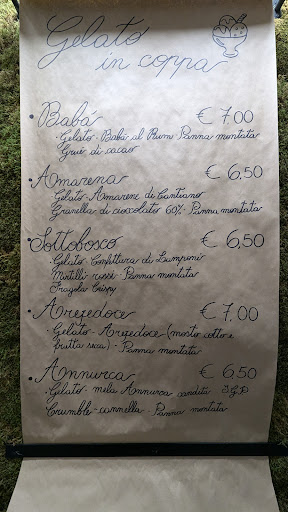 Gelato
in coppa
• Babà € 7.00
- Gelato - Babà al Rum - Panna montata
Gruè di cacao
• Amarena € 6,50
- Gelato - Amarene di Cantiano
Granella di cioccolato 60% - Panna montata
• Sottobosco € 6,50
- Gelato - Confettura di Lamponi
Mirtilli rossi - Panna montata
Fragola Crispy
• Arefedoce € 7.00
- Gelato - Arefedoce (mosto cotto e
frutta secca) - Panna montata
• Annurca € 6,50
- Gelato - mela Annurca candita
Crumble - cannella - Panna montata